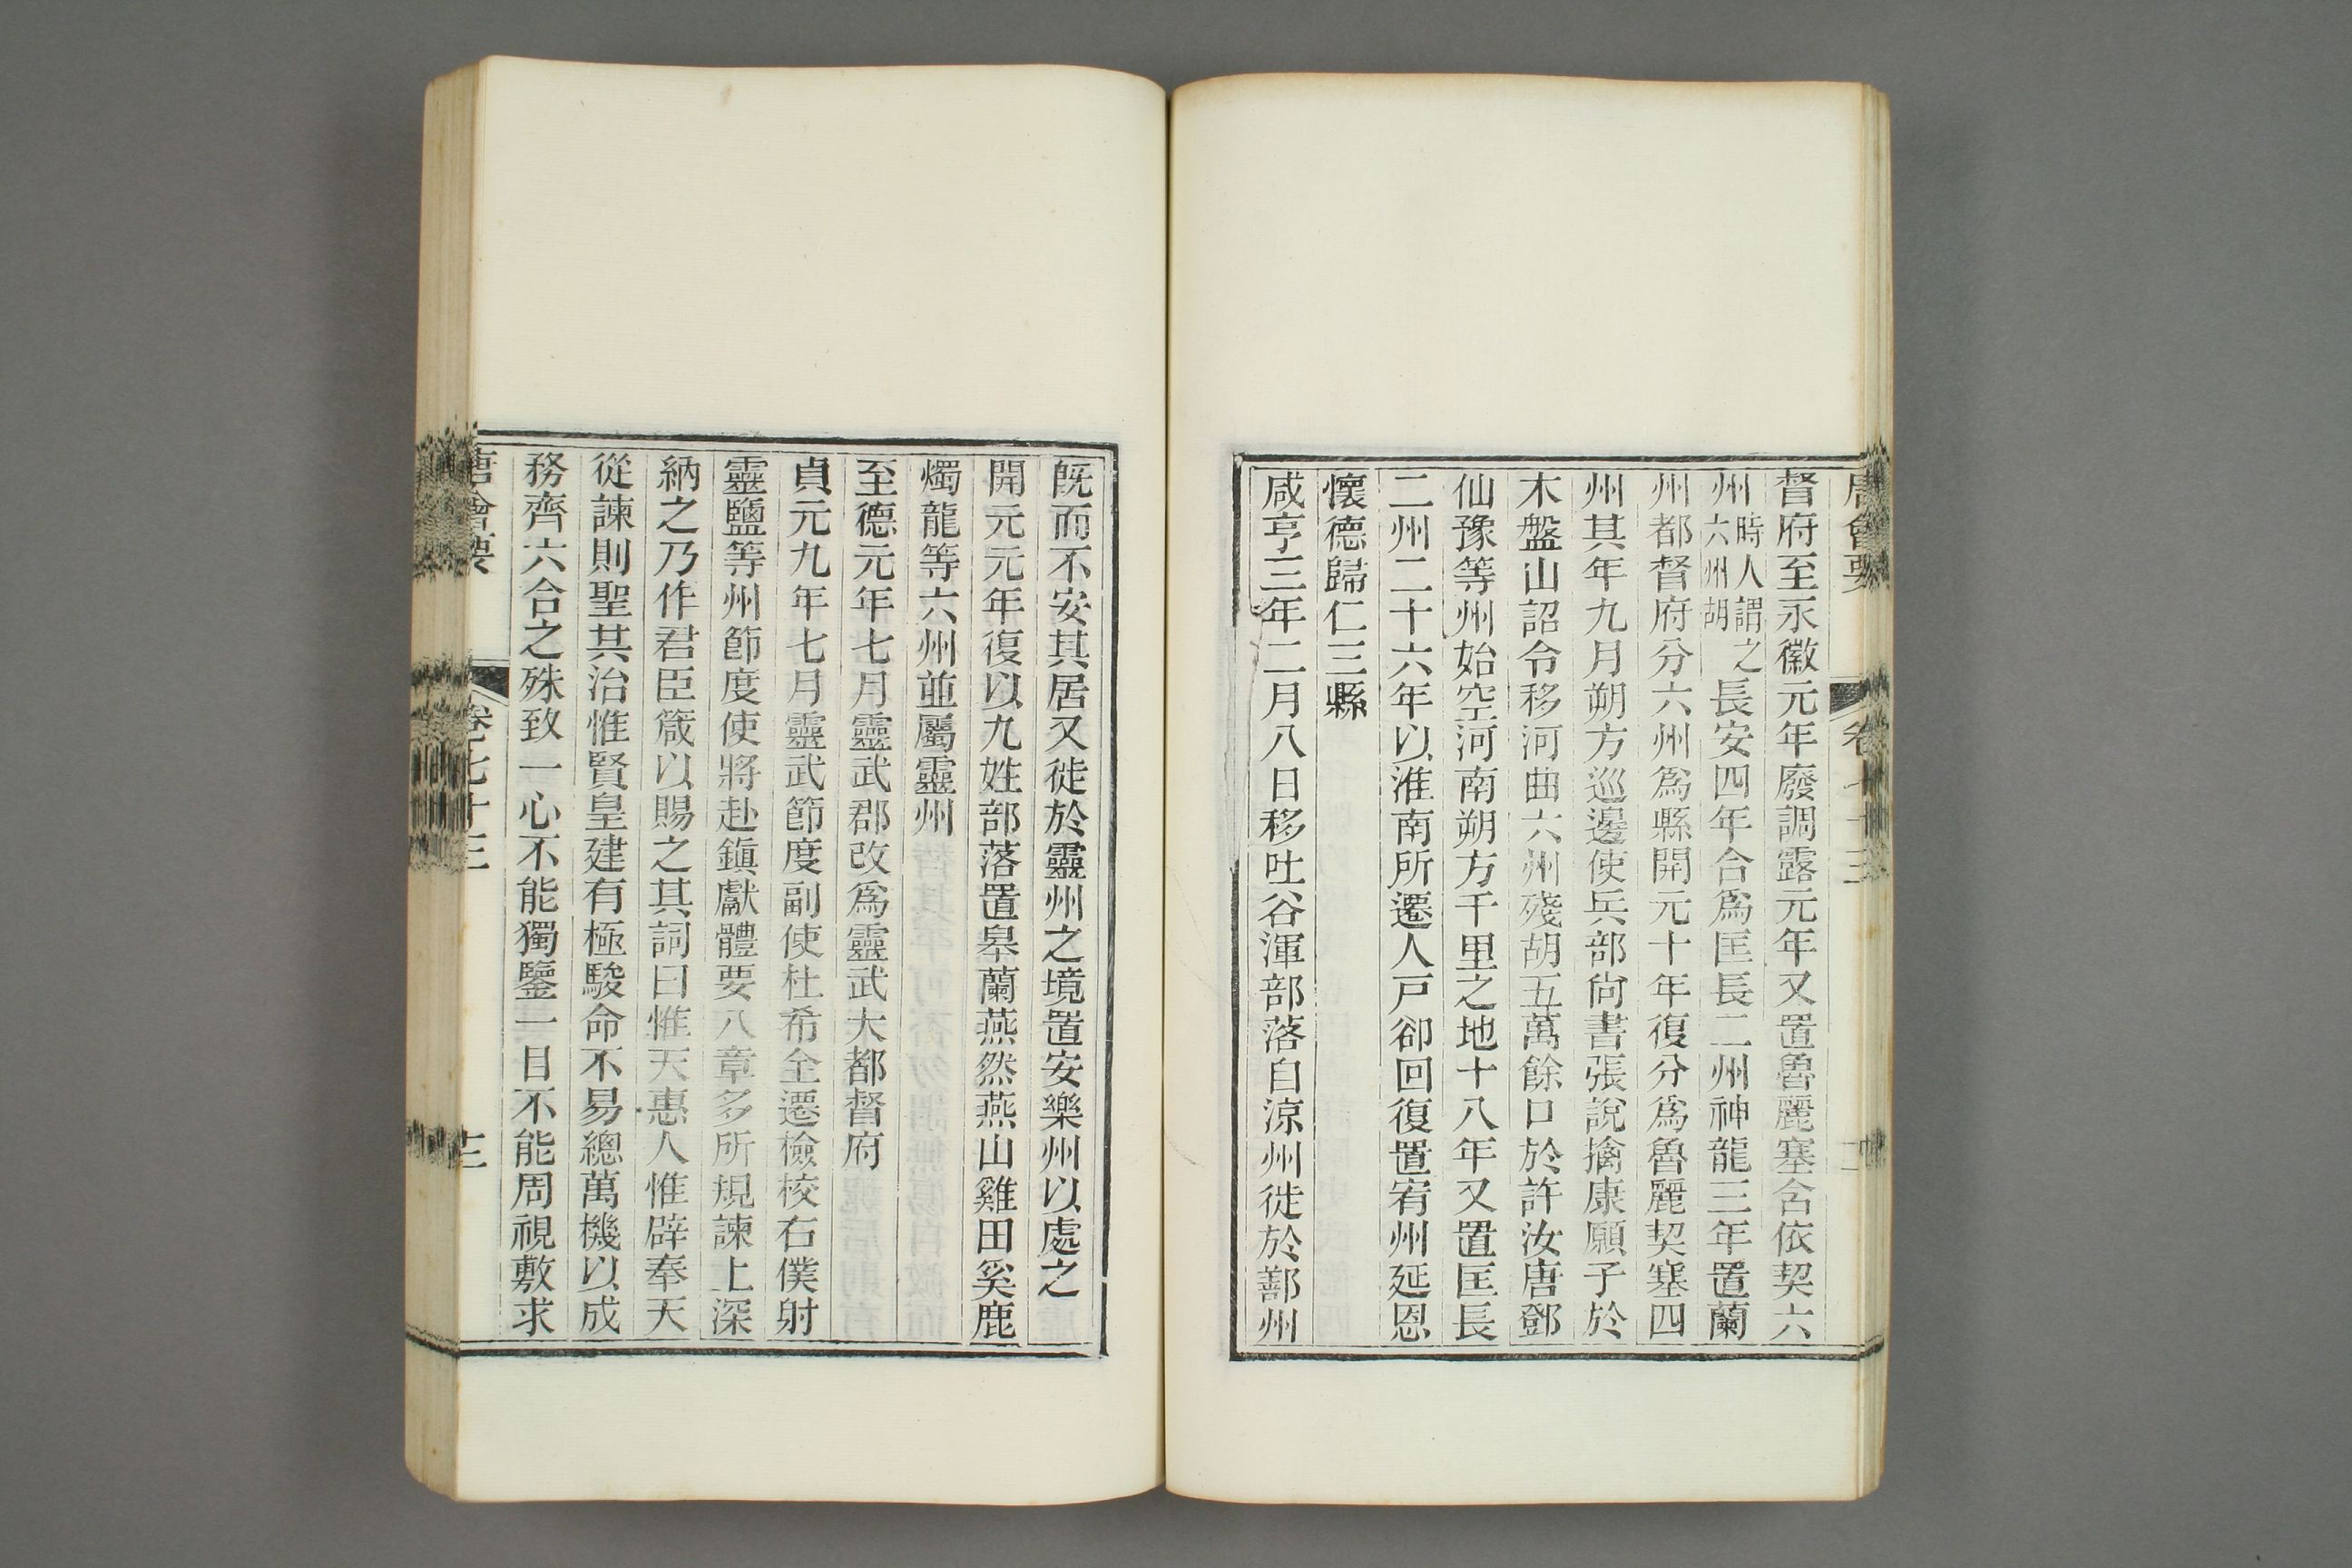 唐會要 卷七十三
督府至永徽元年廢調露元年又置魯麗塞含依契六
州時人謂之六州胡長安四年合爲匡長二州神龍三年置蘭
州都督府分六州爲縣開元十年復分爲魯麗契塞四
州其年九月朔方巡邊使兵部尙書張說擒康願子於
木盤山詔令移河曲六州殘胡五萬餘口於許汝唐鄧
仙豫等州始空河南朔方千里之地十八年又置匡長
二州二十六年以淮南所遷人戸卻回復置宥州延恩
懷德歸仁三縣
咸亨三年二月八日移吐谷渾部落自涼州徙於鄯州
既而不安其居又徙於靈州之境置安樂州以處之
開元元年復以九姓部落置皋蘭燕然燕山雞田奚鹿
燭龍等六州並屬靈州
至德元年七月靈武郡改爲靈武大都督府
貞元九年七月靈武節度副使杜希全遷檢校右僕射
靈鹽等州節度使將赴鎭獻體要八章多所規諫上深
納之乃作君臣箴以賜之其詞曰惟天惠人惟辟奉天
從諫則聖其治惟賢皇建有極駿命不易總萬機以成
務齊六合之殊致一心不能獨鑒一目不能周視敷求
唐會要 卷七十三